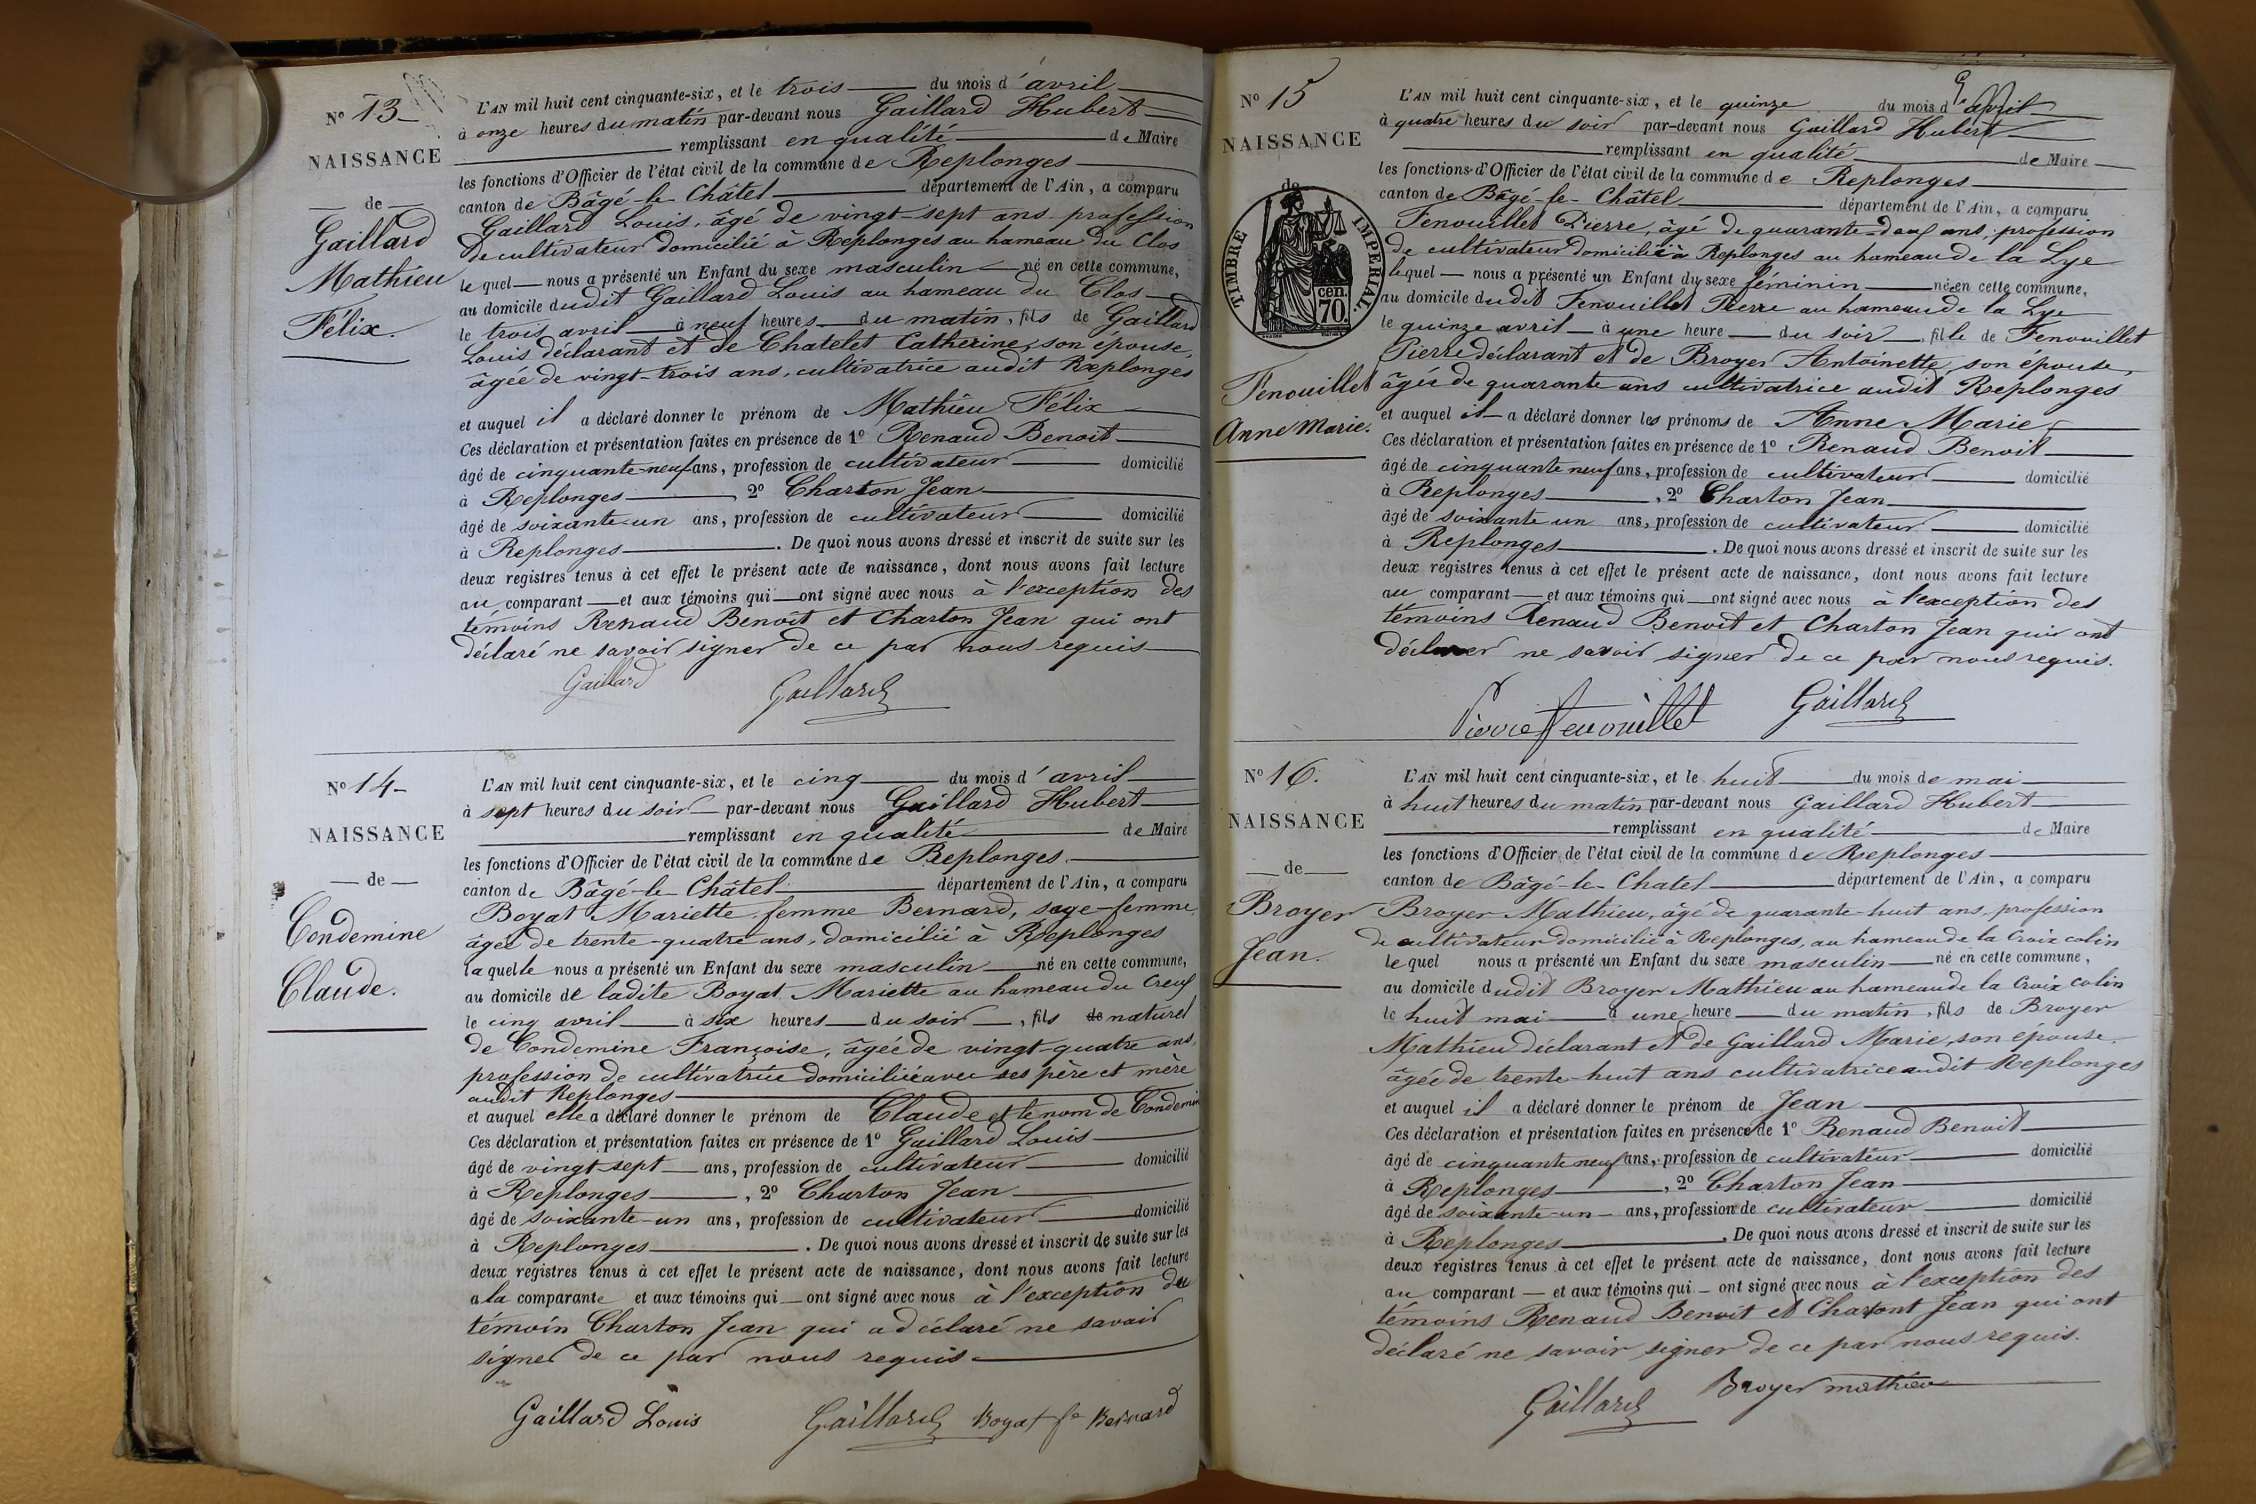 N° 13
NAISSANCE
de
Gaillard
Mathieu
Félix.
L'AN mil huit cent cinquante-six, et le trois du mois d'avril
à onze heures du matin par-devant nous Gaillard Hubert
remplissant en qualité de Maire
les fonctions d'Officier de l'état civil de la commune de Replonges
canton de Bâgé-le-Châtel département de l'Ain, a comparu
Gaillard Louis, âgé de vingt-sept ans profession
de cultivateur domicilié à Replonges au hameau du Clos
le quel nous a présenté un Enfant du sexe masculin né en cette commune,
au domicile dudit Gaillard Louis au hameau du Clos
le trois avril à neuf heures du matin, fils de Gaillard
Louis déclarant et de Chatelet Catherine, son épouse,
âgée de vingt-trois ans, cultivatrice audit Replonges
et auquel il a déclaré donner le prénom de Mathieu Félix
Ces déclaration et présentation faites en présence de 1° Renaud Benoit
âgé de cinquante-neuf ans, profession de cultivateur domicilié
à Replonges, 2° Charton Jean
âgé de soixante-un ans, profession de cultivateur domicilié
à Replonges. De quoi nous avons dressé et inscrit de suite sur les
deux registres tenus à cet effet le présent acte de naissance, dont nous avons fait lecture
au comparant et aux témoins qui ont signé avec nous à l'exception des
témoins Renaud Benoît et Charton Jean qui ont
déclaré ne savoir signer de ce par nous requis
Gaillard Gaillard
N° 14
NAISSANCE
de
Condemine
Claude.
L'AN mil huit cent cinquante-six, et le cinq du mois d'avril
à sept heures du soir par-devant nous Gaillard Hubert
remplissant en qualité de Maire
les fonctions d'Officier de l'état civil de la commune de Replonges
canton de Bâgé-le-Châtel département de l'Ain, a comparu
Boyat Mariette femme Bernard, sage-femme,
âgée de trente-quatre ans, domicilié à Replonges
laquelle nous a présenté un Enfant du sexe masculin né en cette commune,
au domicile de ladite Boyat Mariette au hameau du Creuf
le cinq avril à six heures du soir, fils de naturel
de Condemine Françoise, âgée de vingt-quatre ans,
profession de cultivatrice domiciliée avec ses père et mère
audit Replonges
et auquel elle a déclaré donner le prénom de Claude et le nom de Condemin
Ces déclaration et présentation faites en présence de 1° Gaillard Louis
âgé de vingt sept ans, profession de cultivateur domicilié
à Replonges, 2° Charton Jean
âgé de soixante-un ans, profession de cultivateur domicilié
à Replonges. De quoi nous avons dressé et inscrit de suite sur les
deux registres tenus à cet effet le présent acte de naissance, dont nous avons fait lecture
a la comparante et aux témoins qui ont signé avec nous à l'exception du
témoin Charton Jean qui a déclaré ne savoir
signer de ce par nous requis
Gaillard Louis Gaillard Boyat fe Bernard
N° 15
NAISSANCE
de
TIMBRE IMPERIAL.
cen.
70.
Fenouillet
Anne Marie.
L'AN mil huit cent cinquante-six, et le quinze du mois d'avril
à quatre heures du soir par-devant nous Gaillard Hubert
remplissant en qualité de Maire
les fonctions d'Officier de l'état civil de la commune de Replonges
canton de Bâgé-le-Châtel département de l'Ain, a comparu
Fenouillet Pierre, âgé de quarante-deux ans, profession
de cultivateur domicilié à Replonges au hameau de la Lye
lequel nous a présenté un Enfant du sexe féminin née en cette commune,
au domicile dudit Fenouillet Pierre au hameau de la Lye
le quinze avril à une heure du soir, fille de Fenouillet
Pierre déclarant et de Broyer Antoinette, son épouse,
âgée de quarante ans cultivatrice audit Replonges
et auquel il a déclaré donner les prénoms de Anne Marie
Ces déclaration et présentation faites en présence de 1° Renaud Benoit
âgé de cinquante neuf ans, profession de cultivateur domicilié
à Replonges, 2° Charton Jean
âgé de soixante un ans, profession de cultivateur domicilié
à Replonges. De quoi nous avons dressé et inscrit de suite sur les
deux registres tenus à cet effet le présent acte de naissance, dont nous avons fait lecture
au comparant et aux témoins qui ont signé avec nous à l'exception des
témoins Renaud Benoit et Charton Jean qui ont
déclarer ne savoir signer de ce par nous requis.
Pierre Fenouillet Gaillard
N° 16.
NAISSANCE
de
Broyer
Jean.
L'AN mil huit cent cinquante-six, et le huit du mois de mai
à huit heures du matin par-devant nous Gaillard Hubert
remplissant en qualité de Maire
les fonctions d'Officier de l'état civil de la commune de Replonges
canton de Bâgé-le-Chatel département de l'Ain, a comparu
Broyer Mathieu, âgé de quarante-huit ans, profession
de cultivateur domicilié à Replonges, au hameau de la Croix colin
lequel nous a présenté un Enfant du sexe masculin né en cette commune,
au domicile dudit Broyer Mathieu au hameau de la Croix colin
le huit mai à une heure du matin, fils de Broyer
Mathieu déclarant et de Gaillard Marie, son épouse.
âgée de trente-huit ans cultivatrice audit Replonges
et auquel il a déclaré donner le prénom de Jean
Ces déclaration et présentation faites en présence de 1° Renaud Benoit
âgé de cinquante neuf ans, profession de cultivateur domicilié
à Replonges, 2° Charton Jean
âgé de soixante-un ans, profession de cultivateur domicilié
à Replonges. De quoi nous avons dressé et inscrit de suite sur les
deux registres tenus à cet effet le présent acte de naissance, dont nous avons fait lecture
au comparant et aux témoins qui ont signé avec nous à l'exception des
témoins Renaud Benoit et Chartont Jean qui ont
déclaré ne savoir signer de ce par nous requis.
Gaillard Broyer mathieu